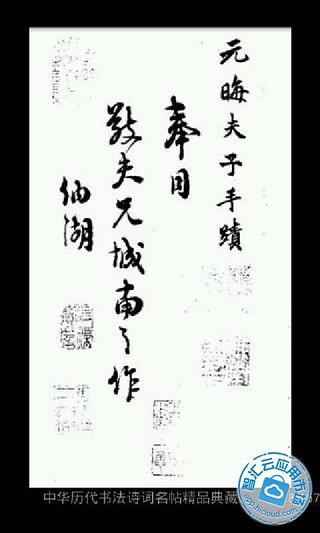 元晦夫子手蹟
奉同
敬夫兄城南之作
纳湖
中华历代书法诗词名帖精品典藏
智汇云应用市场
app.hicloud.com